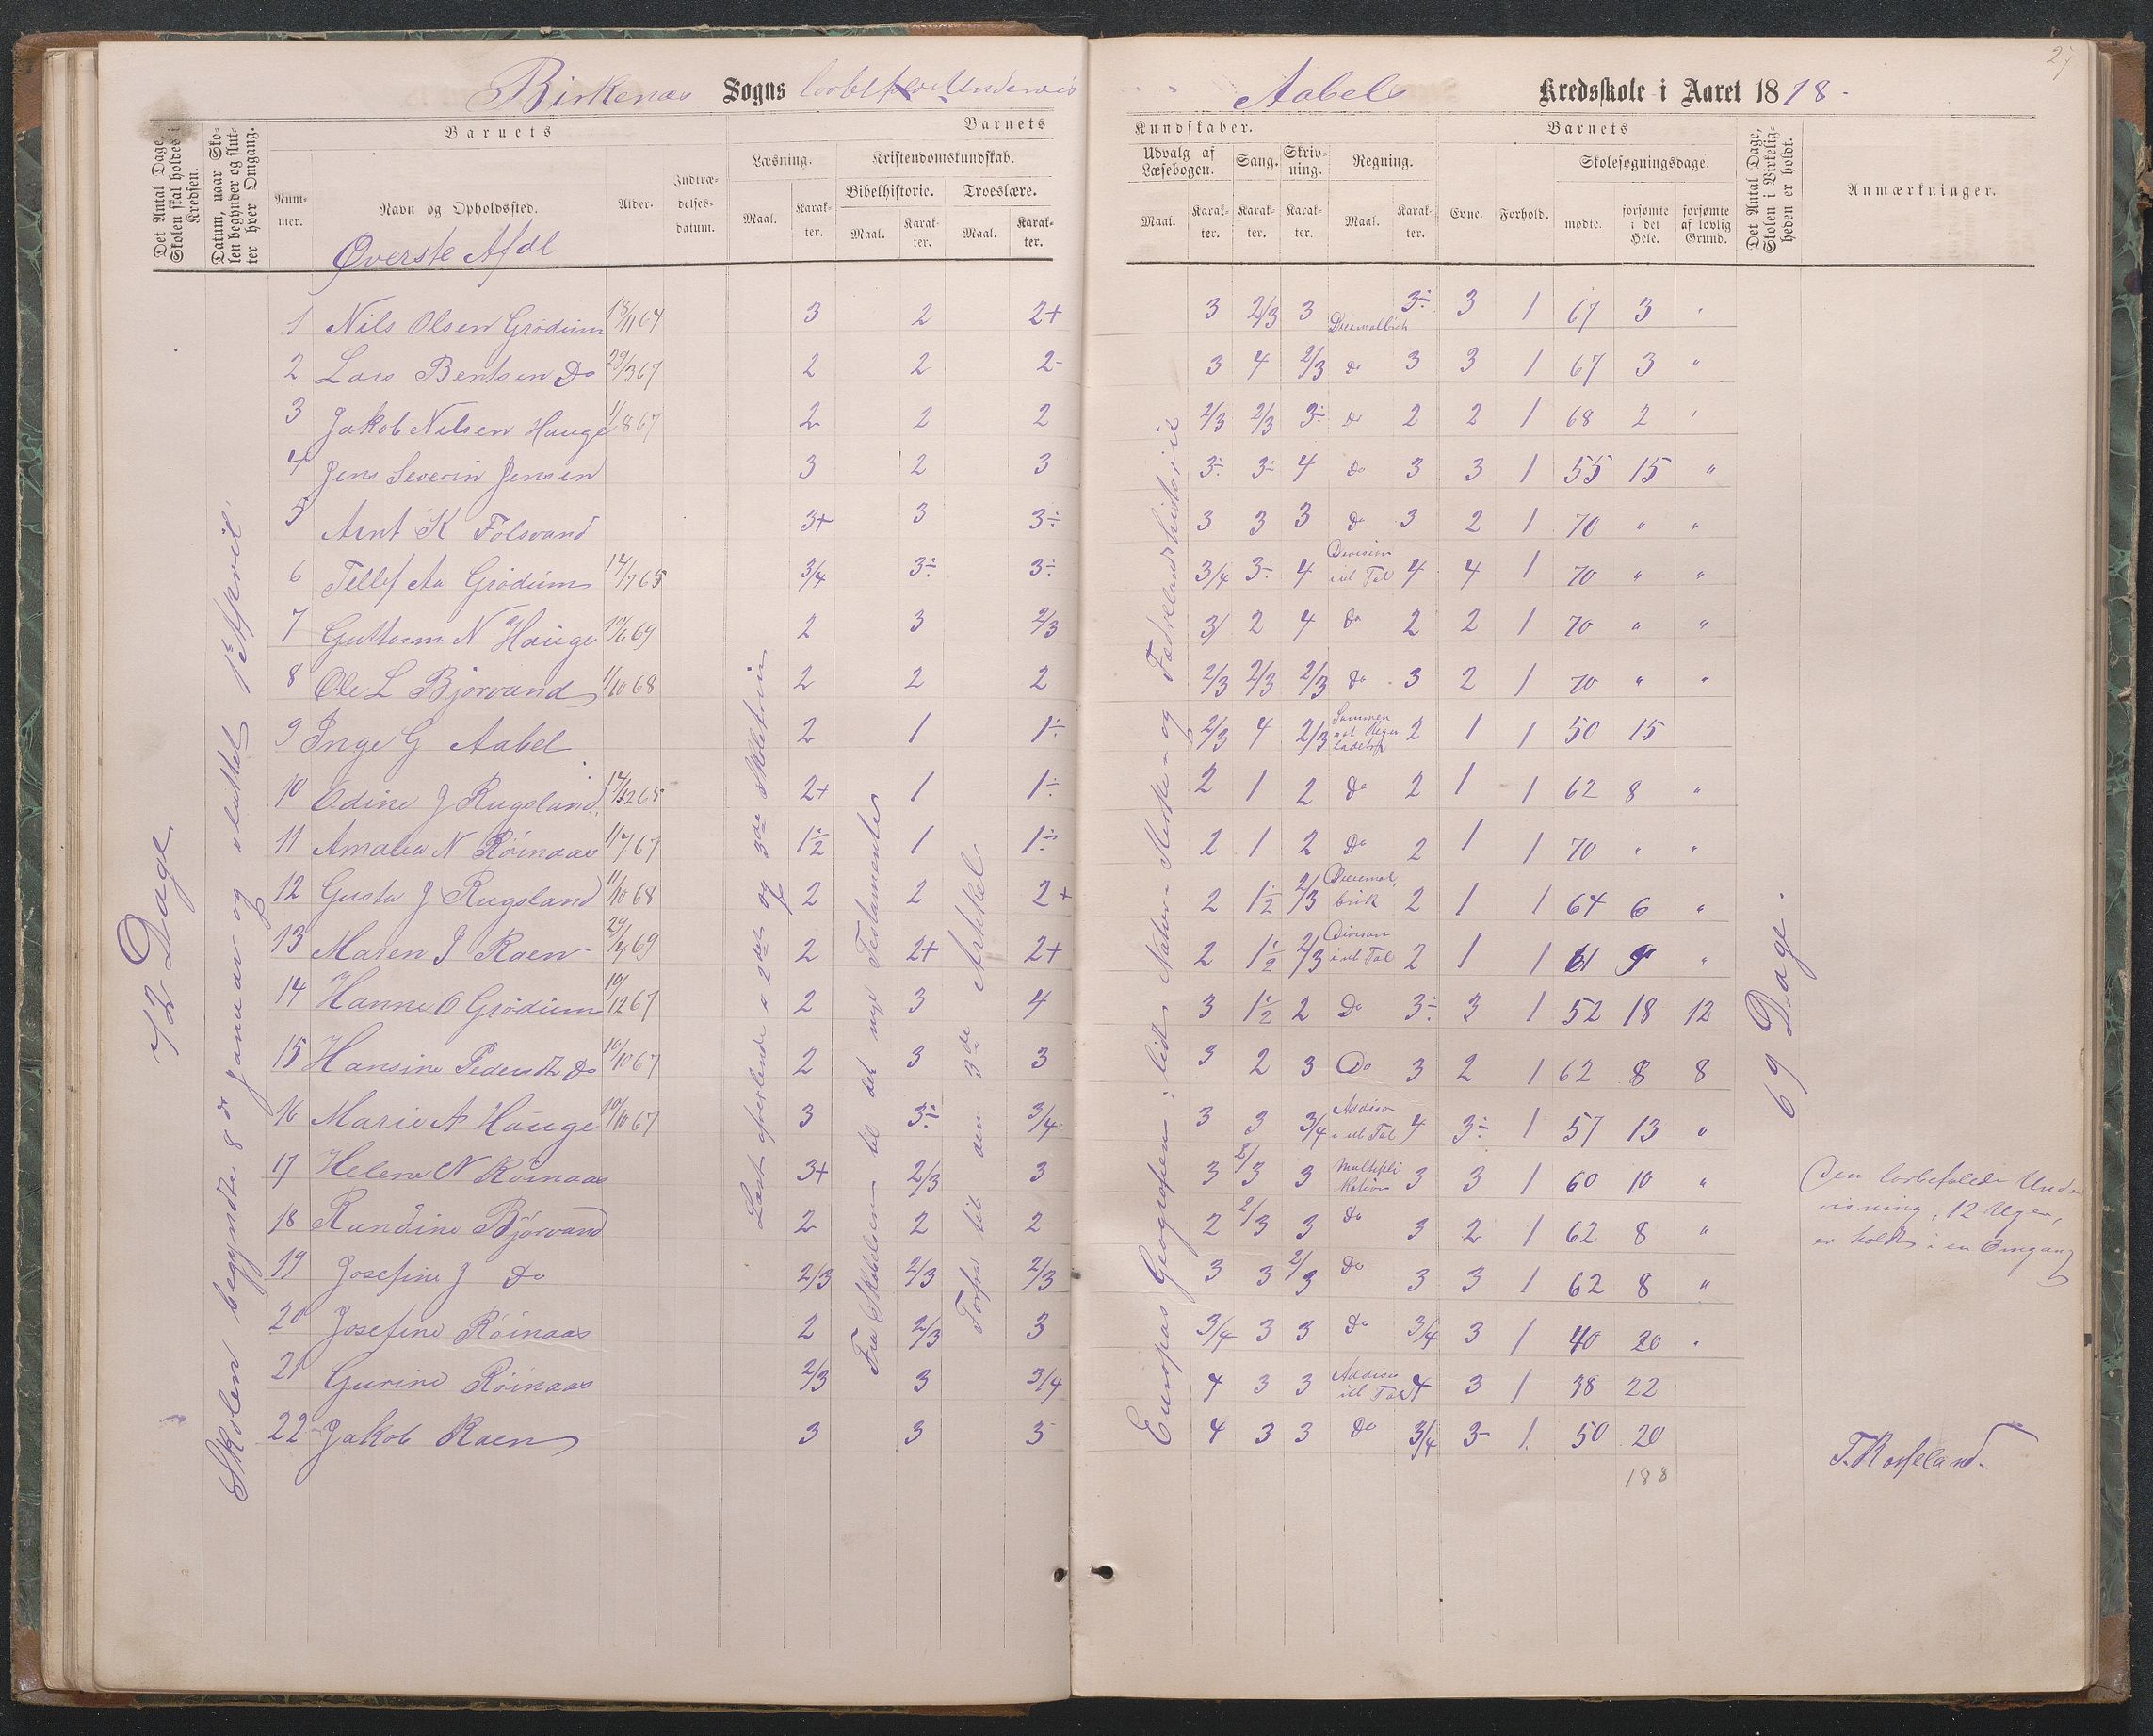 27
Birkenæs Sogns lovbefalede Underviis
Aabels Kredsskole i Aaret 1878.
Det Antal Dage, Skolen skal holdes i Kredsen.
Datum, naar Skolen begynder og slutter hver Omgang.
Barnets
Nummer.
Navn og Opholdssted.
Alder.
Indtrædelsesdatum.
Barnets
Læsning.
Maal.
Karakter.
Kristendomskundskab.
Bibelhistorie.
Maal.
Karakter.
Troeslære.
Maal.
Karakter.
Kundskaber.
Udvalg af Læsebogen.
Maal.
Karakter.
Sang.
Karakter.
Skrivning.
Karakter.
Regning.
Maal.
Karakter.
Barnets
Evne.
Forhold.
Skolesøgningsdage.
mødte.
forsømte i det Hele.
forsømte af lovlig Grund.
Det Antal Dage, Skolen i Virkeligheden er holdt.
Anmærkninger.
Øverste Afdl
72 Dage
Skolen begyndte 8de Januar og sluttet 1ste April.
Læst afvexlende i 2det og 3de Skoletrin
Fra Skabelsen til det nye Testamente
Forfra til den 3de Artikel
Europas Geografien; lidt Natur- Kirke- og Fædrelandshistorie
69 Dage.
1 Nils Olsen Grødum 18/11 64 3 2 2+ 3 2/3 3 Decimalbrøk 3÷ 3 1 67 3 "
2 Lars Bentsen Do 29/3 67 2 2 2- 3 4 2/3 Do 3 3 1 67 3 "
3 Jakob Nilsen Hauge 1/8 67 2 2 2 2/3 2/3 3÷ Do 2 2 1 68 2 "
4 Jens Severin Jensen 3 2 3 3÷ 3÷ 4 Do 3 3 1 55 15 "
5 Arnt K Følsvand 3+ 3 3÷ 3 3 3 Do 3 2 1 70 " "
6 Tellef Aa Grødum 14/7 65 3/4 3÷ 3÷ 3/4 3÷ 4 Division i el Tal 4 4 1 70 " "
7 Guttorm N Hauge 10/6 69 2 3 2/3 3/ 2 4 Do 2 2 1 70 " "
8 Ole L Bjorvand 1/10 68 2 2 2 2/3 2/3 2/3 Do 3 2 1 70 " "
9 Inge G Aabel 2 1 1÷ 2/3 4 2/3 Sammen sat Regu ladetri 2 1 1 50 15
10 Odine J Rugsland 14/12 65 2+ 1 1÷ 2 1 2 Do 2 1 1 62 8 "
11 Amalia N Röinaas 11/7 67 1½ 1 1÷ 2 1 2 Do 2 1 1 70 " "
12 Gusta J Rugsland 11/10 68 2 2 2+ 2 1½ 2/3 Decimalbrøk 2 1 1 64 6 "
13 Maren J Raen 29/4 69 2 2+ 2+ 2 1½ 2/3 Division i el Tal 2 1 1 61 9 "
14 Hanne O Grødum 10/12 67 2 3 4 3 1½ 2 Do 3÷ 3 1 52 18 12
15 Hansine Pedersdt Do 10/10 67 2 3 3 3 2 3 Do 3 2 1 62 8 8
16 Marie A Hauge 10/10 67 3 3÷ 3/4 3 3 3/4 Addison i el Tal 4 3÷ 1 57 13 "
17 Helene N Röinaas 3+ 2/3 3 3 2/3 3 Multipli kation 3 3 1 60 10 "
18 Randine Bjorvand 2 2 2 2 2/3 3 Do 3 2 1 62 8 "
19 Josefine J Do 2/3 2/3 2/3 3 3 2/3 Do 3 3 1 62 8 "
20 Josefine Röinaas 2 2/3 3 3/4 3 3 Do 3/4 3 1 40 20 "
21 Gurine Röinaas 2/3 3 3/4 4 3 3 Addison i el Tal 4 3 1 38 22
22 Jakob Raen 3 3 3- 4 3 3 Do 3/4 3- 1 50 20
188
Den lovbefalede Under
visning, 12 Uger,
er holdt i en Omgang
T. Rosseland.